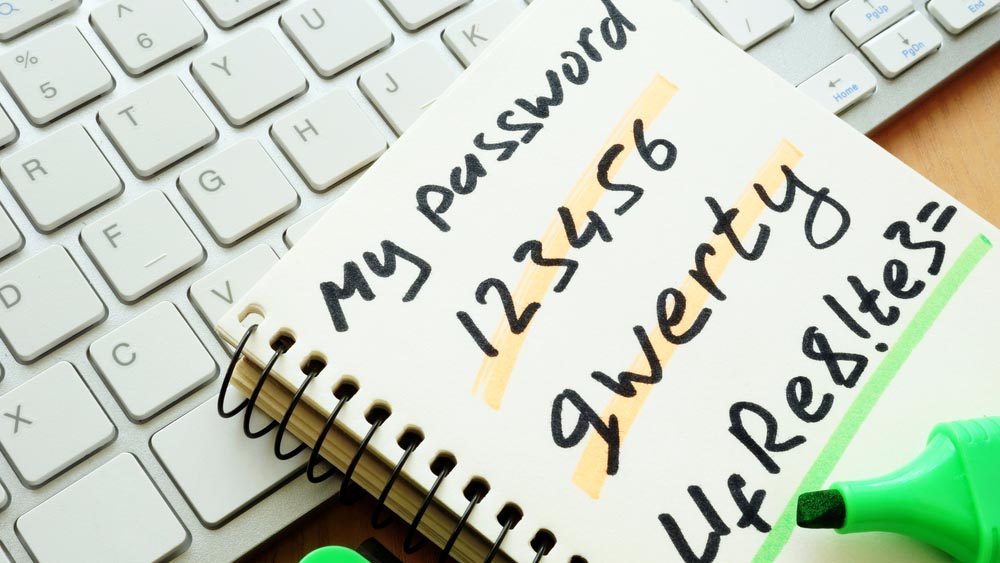 My password
123456
qwerty
4fRe8!te3=
% 5
^ 6
U
K
R
T
Y
D
F
G
H
J
X
C
V
PgUp
PgDn
Home
End